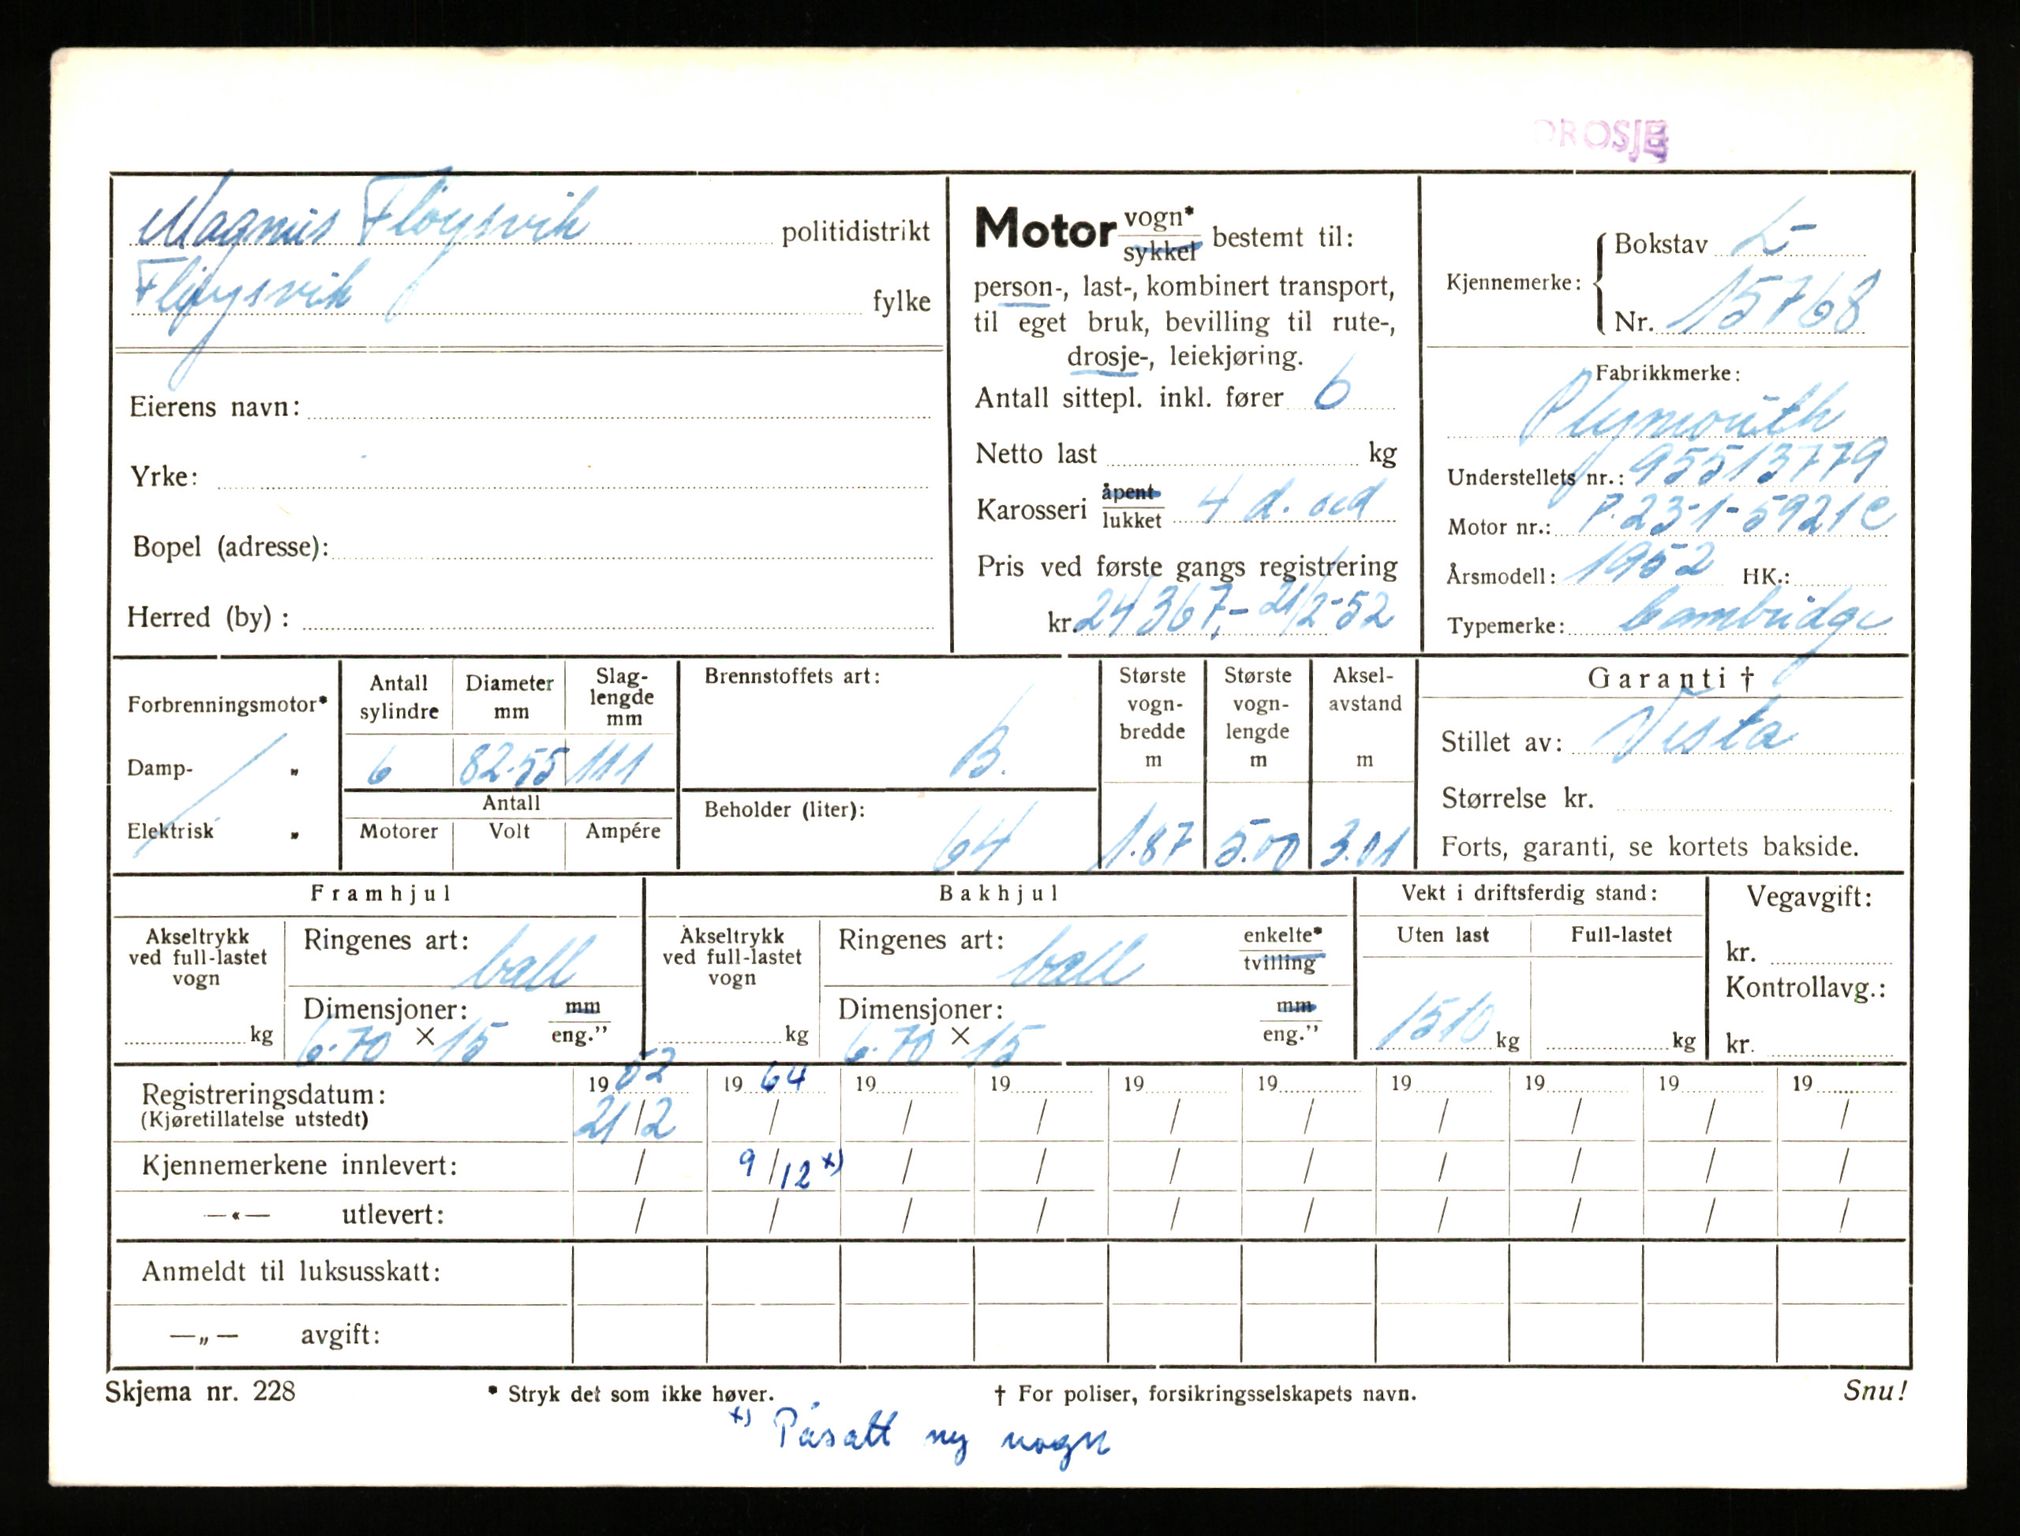 DROSJE
Magnus Fløysvik politidistrikt
Fløysvik fylke
Eierens navn:
Yrke:
Bopel (adresse):
Herred (by) :
Motor vogn* sykkel bestemt til:
person-, last-, kombinert transport,
til eget bruk, bevilling til rute-,
drosje-, leiekjøring.
Antall sittepl. inkl. fører 6
Netto last kg
Karosseri åpent lukket 4 d. sed
Pris ved første gangs registrering
kr 24367,- 21/2-52
Kjennemerke: Bokstav L-
Nr. 15768
Fabrikkmerke:
Plymouth
Understellets nr.: 95513779
Motor nr.: P.23-1-5921 C
Årsmodell: 1952 HK.:
Typemerke: Cambridge
Forbrenningsmotor*
Damp- "
Elektrisk "
Antall sylindre Diameter mm Slag-lengde mm
6 82.55 111
Antall
Motorer Volt Ampére
Brennstoffets art:
B.
Beholder (liter):
64
Største vogn-bredde m Største vogn-lengde m Aksel-avstand m
1.87 5.00 3.01
Garanti †
Stillet av: Vesta
Størrelse kr.
Forts, garanti, se kortets bakside.
Framhjul
Akseltrykk ved full-lastet vogn
kg
Ringenes art: ball
Dimensjoner: mm eng."
6.70 × 15
Bakhjul
Akseltrykk ved full-lastet vogn
kg
Ringenes art: ball enkelte* tvilling
Dimensjoner: mm eng."
6.70 × 15
Vekt i driftsferdig stand:
Uten last Full-lastet
1510 kg kg
Vegavgift:
kr.
Kontrollavg.:
kr.
Registreringsdatum: 19 52 19 64 19 19 19 19 19 19 19 19
(Kjøretillatelse utstedt) 21/2 / / / / / / / / /
Kjennemerkene innlevert: / 9/12 x) / / / / / / / /
—«— utlevert: / / / / / / / / / /
Anmeldt til luksusskatt:
—„— avgift:
Skjema nr. 228 * Stryk det som ikke høver. † For poliser, forsikringsselskapets navn. Snu!
x) Påsatt ny vogn